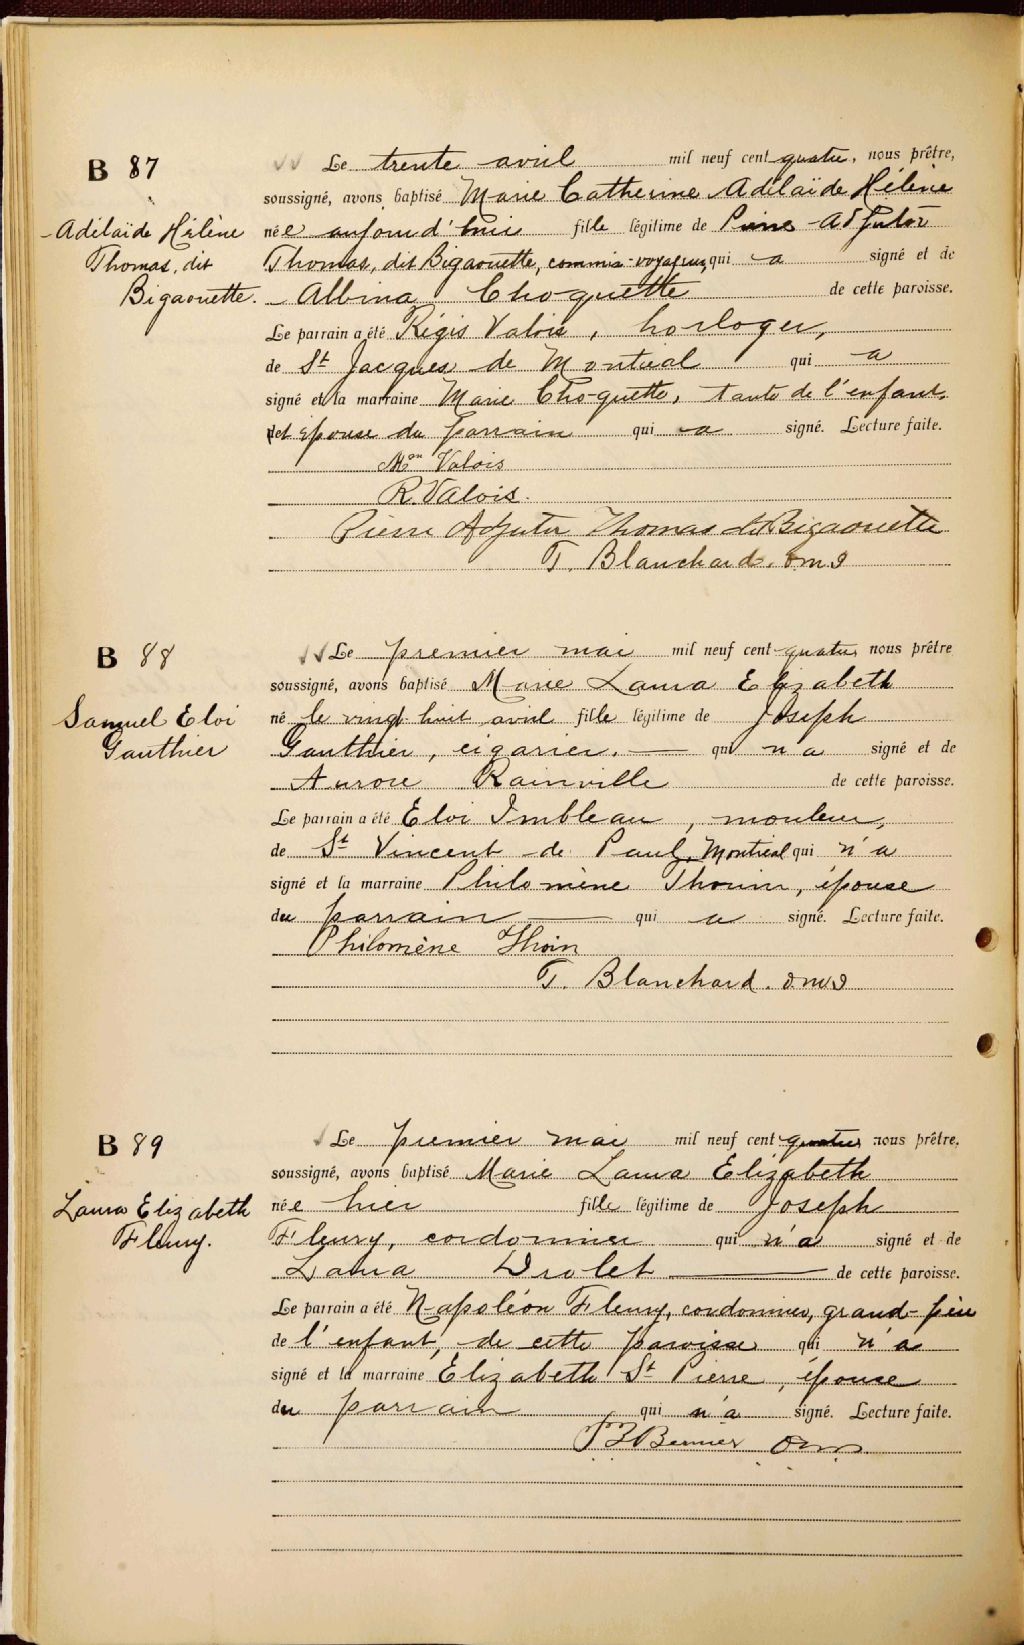 B 87
Adélaïde Hélène
Thomas, dit
Bigaouette.
Le trente avril mil neuf cent quatre, nous prêtre,
soussigné, avons baptisé Marie Catherine Adélaïde Hélène
née aujourd'hui fille légitime de Pierre Adjutor
Thomas, dit Bigaouette, commis-voyageur, qui a signé et de
Albina Choquette de cette paroisse.
Le parrain a été Régis Valois, horloger,
de St Jacques de Montréal qui a
signé et la marraine Marie Choquette, tante de l'enfant,
et épouse du parrain qui a signé. Lecture faite.
Mme Valois
R. Valois.
Pierre Adjutor Thomas dit Bigaouette
T. Blanchard. o.m.I
B 88
Samuel Eloi
Gauthier
Le premier mai mil neuf cent quatre, nous prêtre
soussigné, avons baptisé Marie Laura Elizabeth
né le vingt huit avril fille légitime de Joseph
Gauthier, cigarier, qui n'a signé et de
Aurore Rainville de cette paroisse.
Le parrain a été Eloi Imbleau, mouleur,
de St Vincent de Paul, Montréal qui n'a
signé et la marraine Philomène Thouin, épouse
du parrain qui a signé. Lecture faite.
Philomène Thoin
T. Blanchard. o.m.I
B 89
Laura Elizabeth
Fleury.
Le premier mai mil neuf cent quatre nous prêtre,
soussigné, avons baptisé Marie Laura Elizabeth
née hier fille légitime de Joseph
Fleury, cordonnier qui n'a signé et de
Laura Drolet de cette paroisse.
Le parrain a été Napoléon Fleury, cordonnier, grand-père
de l'enfant, de cette paroisse qui n'a
signé et la marraine Elizabeth St Pierre, épouse
du parrain qui n'a signé. Lecture faite.
Bernier